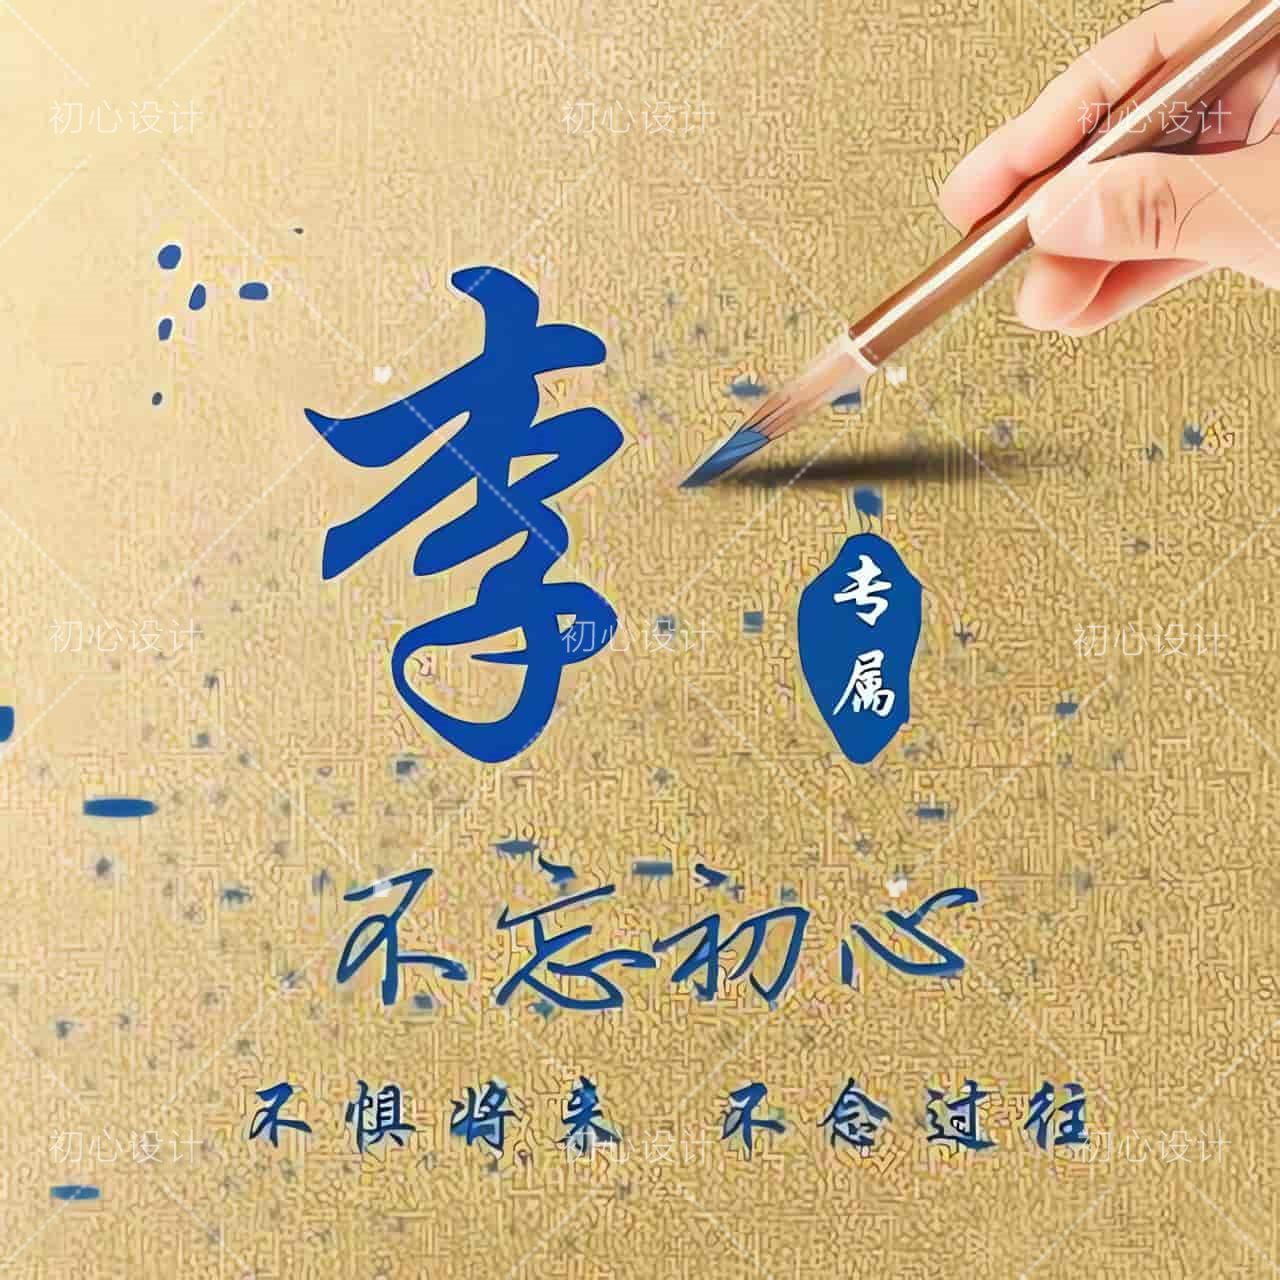 初心设计 初心设计 初心设计
李
专
属
初心设计 初心设计 初心设计
不忘初心
不惧将来 不念过往
初心设计 初心设计 初心设计